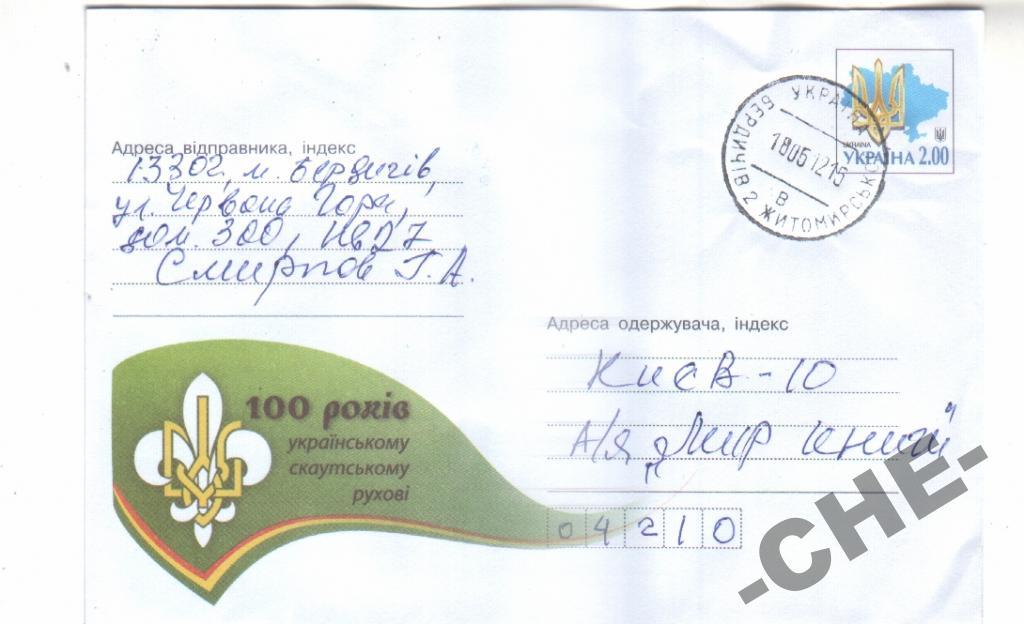 Адреса відправника, індекс
13302, м. Бердичів,
ул. Червона Гора,
дом. 300, кв 27
Смирнов Г. А.
100 років
українському
скаутському
рухові
УКРАЇНА
БЕРДИЧІВ 2 ЖИТОМИРСЬКО
180612 15
В
UKRAINA
УКРАЇНА 2.00
Адреса одержувача, індекс
Києв - 10
А/Я „Мир книги"
04210
-CHE-